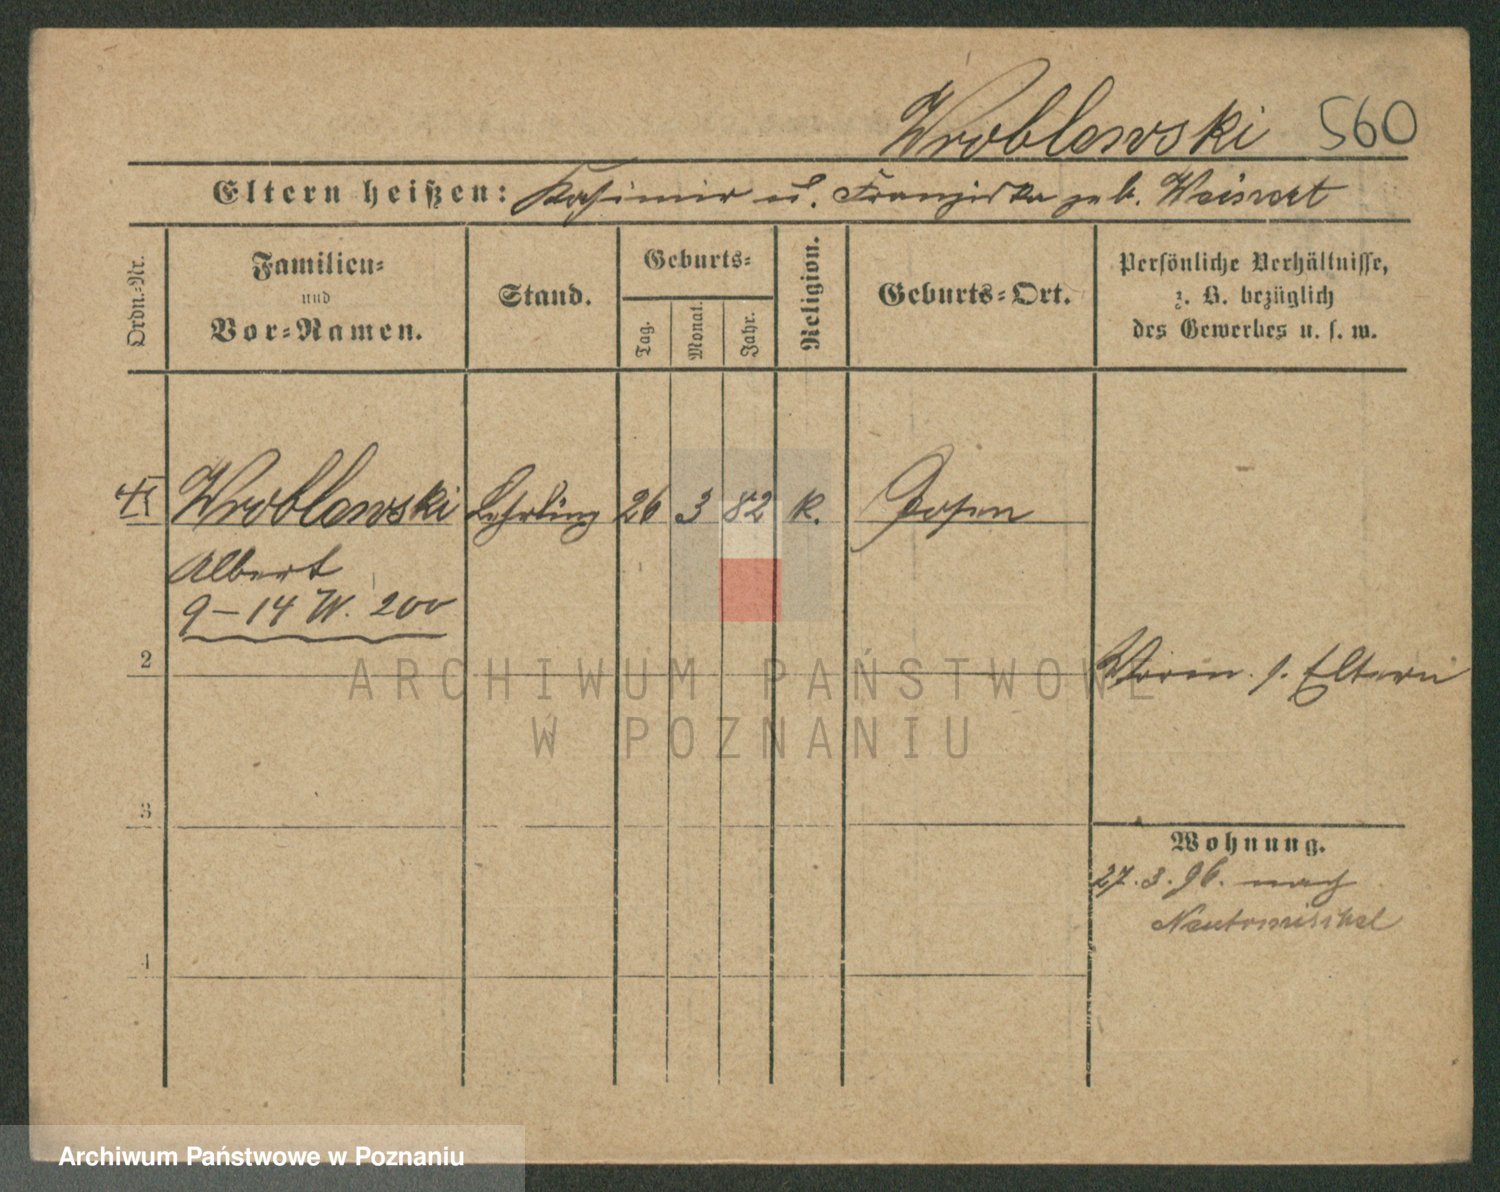 Wroblewski 560
Eltern heißen: Kasimir u. Franziska geb. Weinert
Ordn.-Nr.
Familien-
und
Vor-Namen.
Stand.
Geburts-
Tag.
Monat.
Jahr.
Religion.
Geburts-Ort.
Persönliche Verhältnisse,
z. B. bezüglich
des Gewerbes u. s. w.
Wroblewski Lehrling 26 3 82 K. Posen
Albert
9-14 W. 200
2
Vorm. s. Eltern
3
Wohnung.
27.3.96. nach
Neutomischel
4
ARCHIWUM PAŃSTWOWE
W POZNANIU
Archiwum Państwowe w Poznaniu